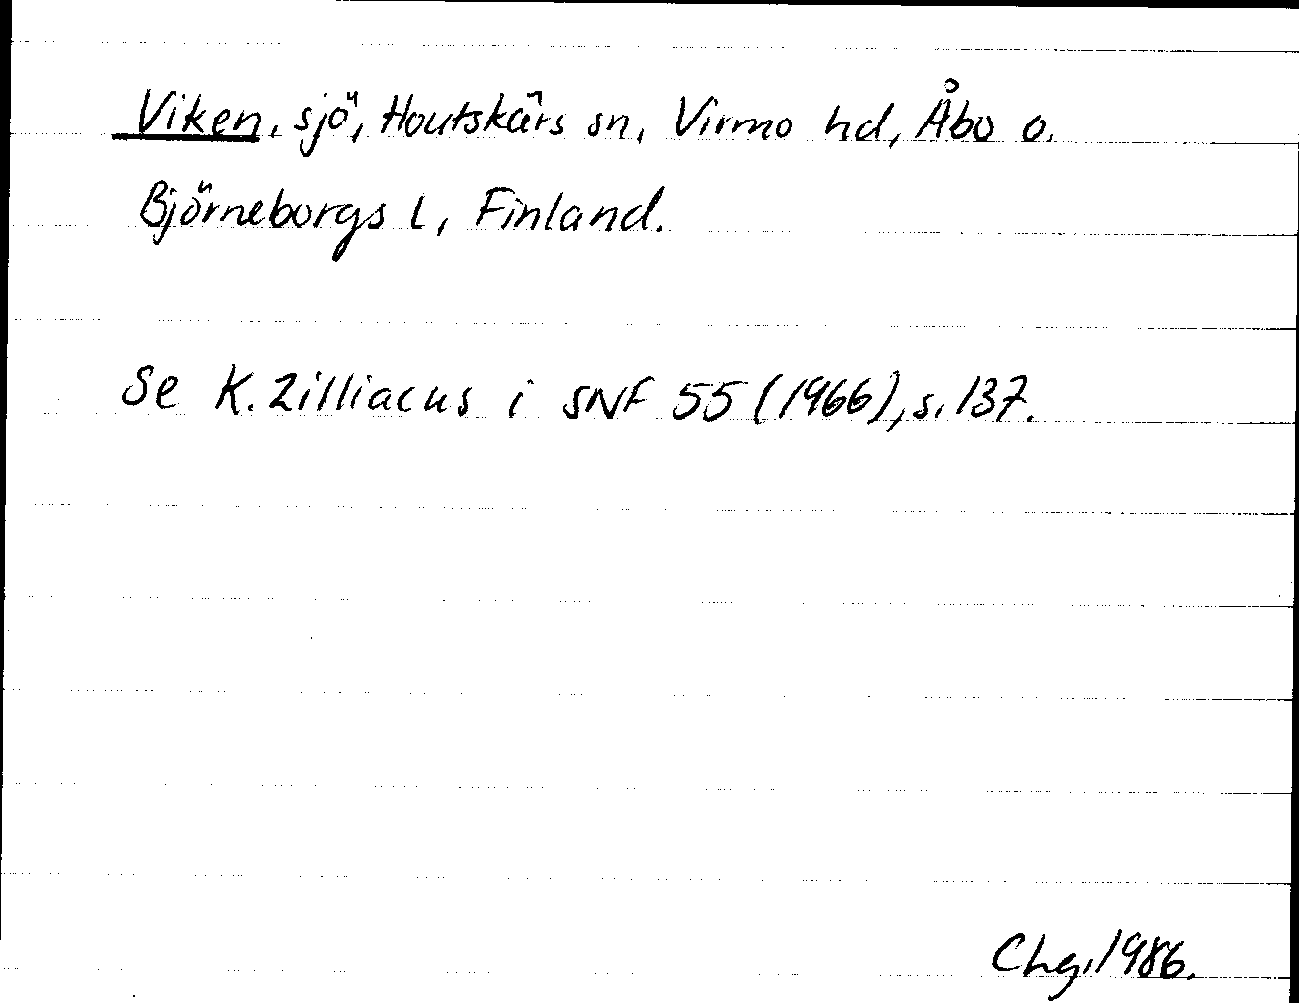 Viken, sjö, Houtskärs sn, Virmo hd, Åbo o.
Björneborgs l, Finland.
Se K. Zilliacus i SNF 55 (1966), s. 137.
Chg, 1986.